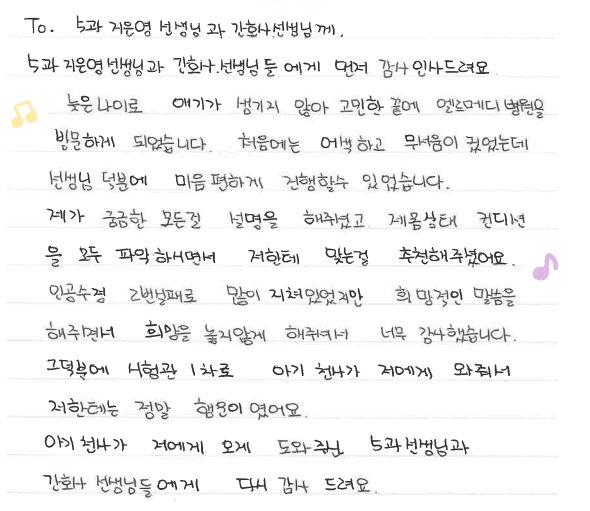 To. 5과 지은영 선생님과 간호사선생님께.
5과 지은영선생님과 간호사.선생님들에게 먼저 감사인사드려요.
늦은나이로 애기가 생기지 않아 고민한 끝에 엔르메디 병원을
방문하게 되었습니다. 처음에는 어색하고 무서움이 컸었는데
선생님 덕분에 마음 편하게 진행할수 있었습니다.
제가 궁금한 모든걸 설명을 해주셨고 제몸상태 컨디션
을 모두 파악하시면서 저한테 맞는걸 추천해주셨어요.
인공수정 2번실패로 많이 지쳐있었지만 희망적인 말씀을
해주면서 희망을 놓지않게 해줘여서 너무 감사했습니다.
그덕분에 시험관 1차로 아기 천사가 저에게 와줘서
저한테는 정말 행운이였어요.
아기 천사가 저에게 오게 도와주신 5과선생님과
간호사 선생님들에게 다시 감사 드려요.